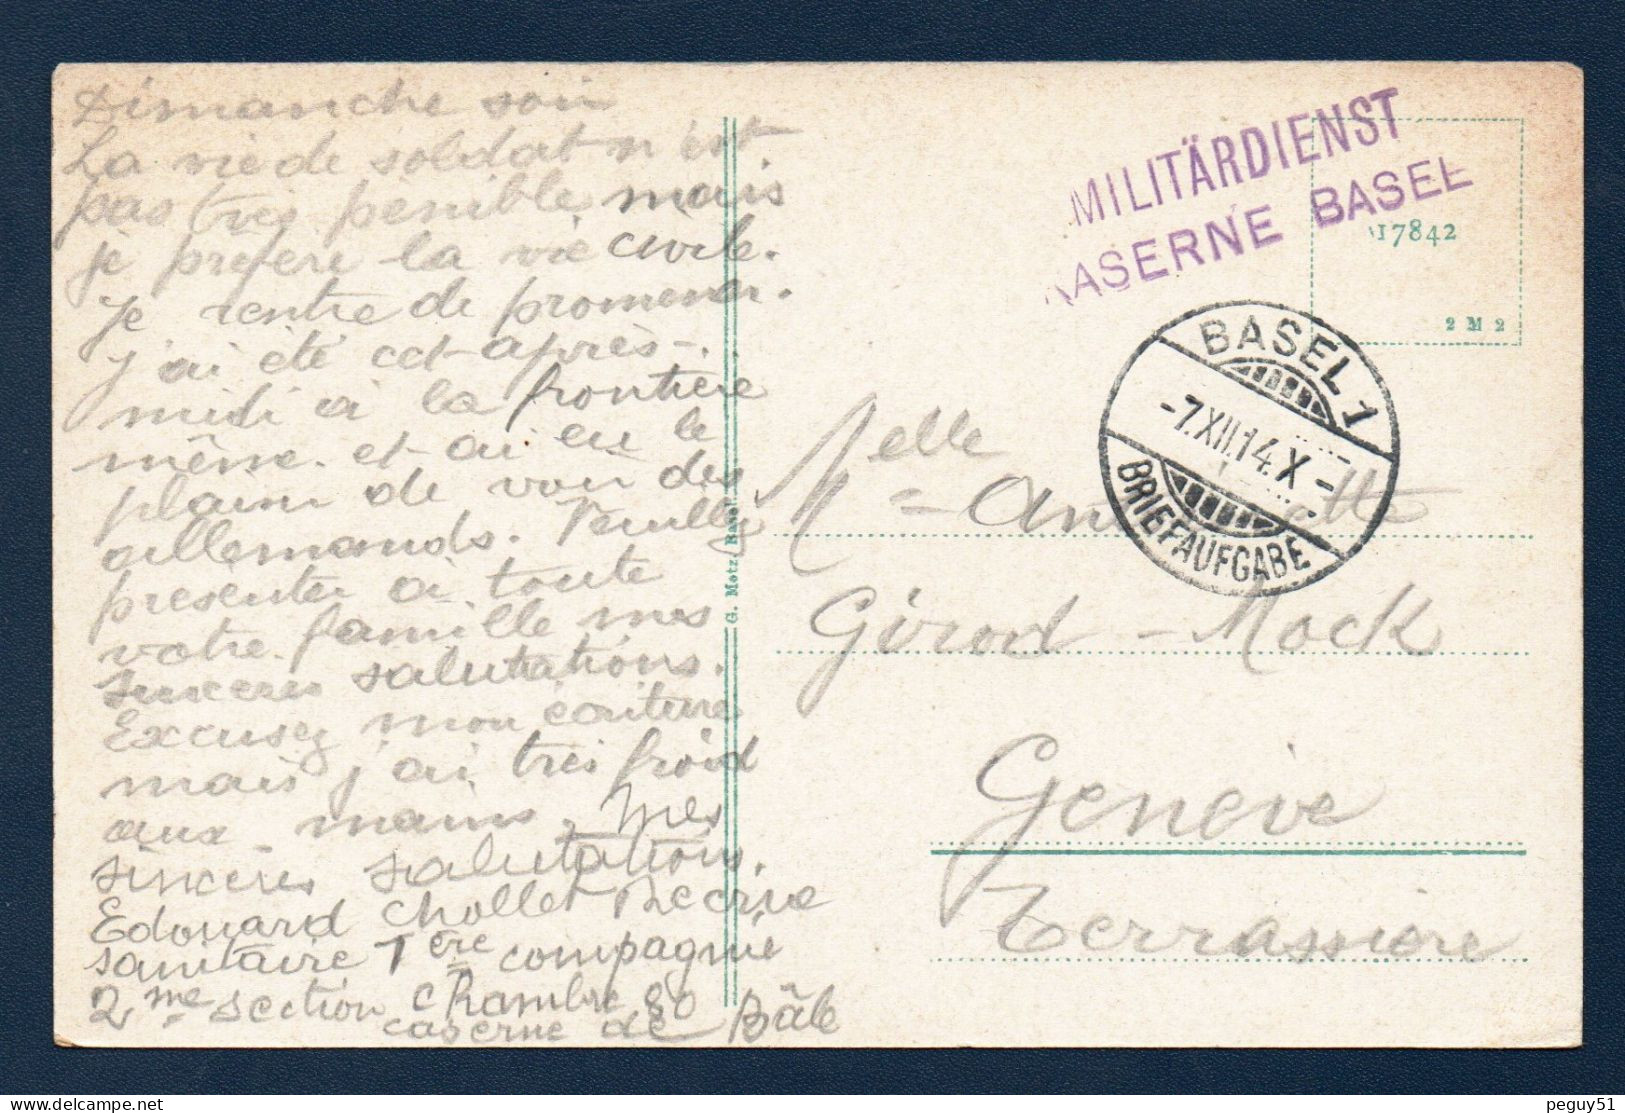 Dimanche soir
La vie de soldat n'est
pas très pénible mais
je préfère la vie civile.
Je rentre de promener.
J'ai été cet après-
midi à la frontière
même et ai eu le
plaisir de voir des
allemands. Veuillez
présenter à toute
votre famille mes
sincères salutations.
Excusez mon écriture
mais j'ai très froid
aux mains. Mes
sincères salutations.
Edouard Chollet Recrue
sanitaire 1ère compagnie
2me section chambre 80
caserne de Bâle
G. Metz, Basel
MILITÄRDIENST
KASERNE BASEL
17842
2 M 2
BASEL 1
-7.XII.14.X-
BRIEFAUFGABE
Melle
Girod-Mock
Genève
Terrassière
peguy51
delcampe.net